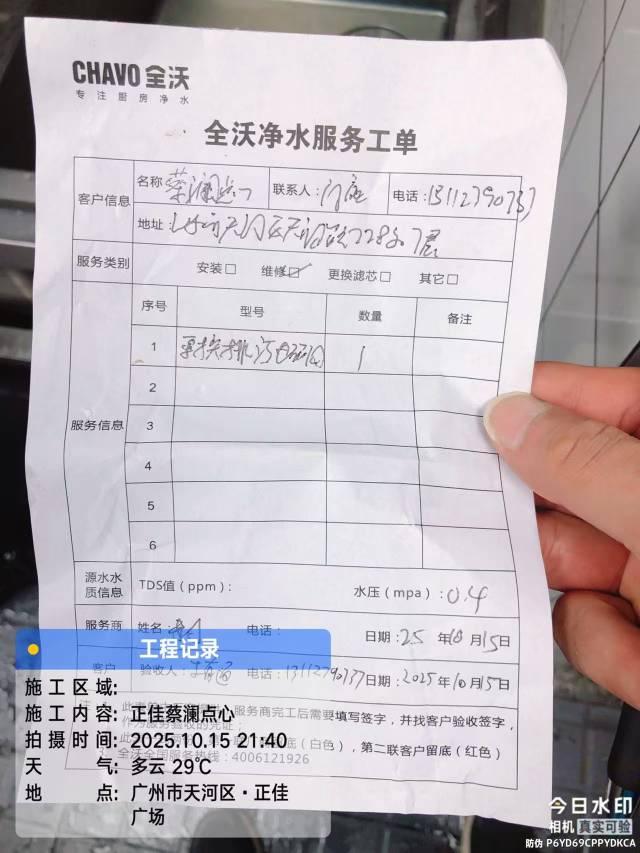 CHAVO 全沃
专注厨房净水
全沃净水服务工单
客户信息 名称 蔡澜点心 联系人: 电话: 13112790737
地址: 天河区天河路228号 7层
服务类别 安装□ 维修☑ 更换滤芯□ 其它□
服务信息 序号 型号 数量 备注
1 更换排污电磁阀 1
2
3
4
5
6
源水水质信息 TDS值（ppm）: 水压（mpa）: 0.4
服务商 姓名: 电话: 日期: 25 年 10 月 15 日
客户 验收人: 电话: 13112790737 日期: 2025 年 10 月 15 日
服务商完工后需要填写签字，并找客户验收签字，
作为服务验收的凭证。
底（白色），第二联客户留底（红色）
3. 全沃全国服务热线: 4006121926
工程记录
施工区域:
施工内容: 正佳蔡澜点心
拍摄时间: 2025.10.15 21:40
天气: 多云 29℃
地点: 广州市天河区·正佳广场
今日水印
相机 真实可验
防伪 P6YD69CPPYDKCA